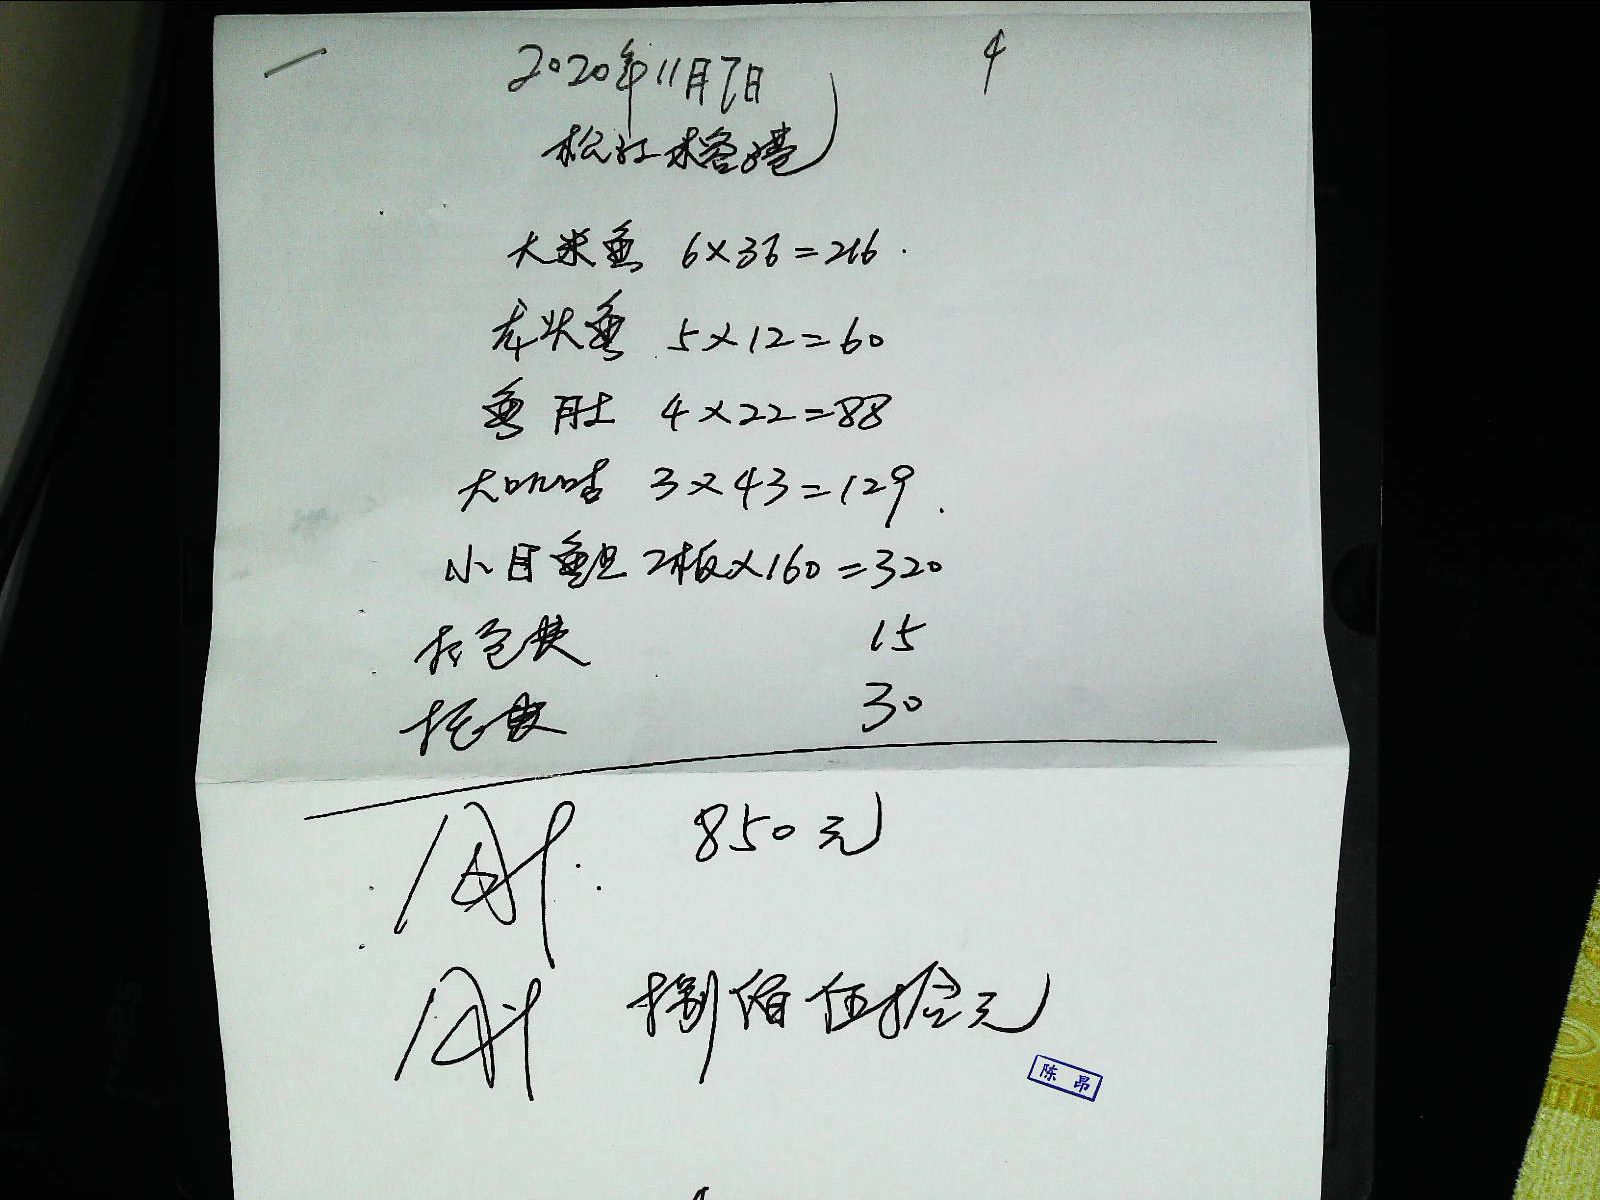 2020年11月7日
4
松江
大米鱼 6×36=216
龙头鱼 5×12=60
鱼肚 4×22=88
大 3×43=129
小目鱼旦 2板×160=320
打包费 15
托费 30
850元
捌佰伍拾元
陈昂